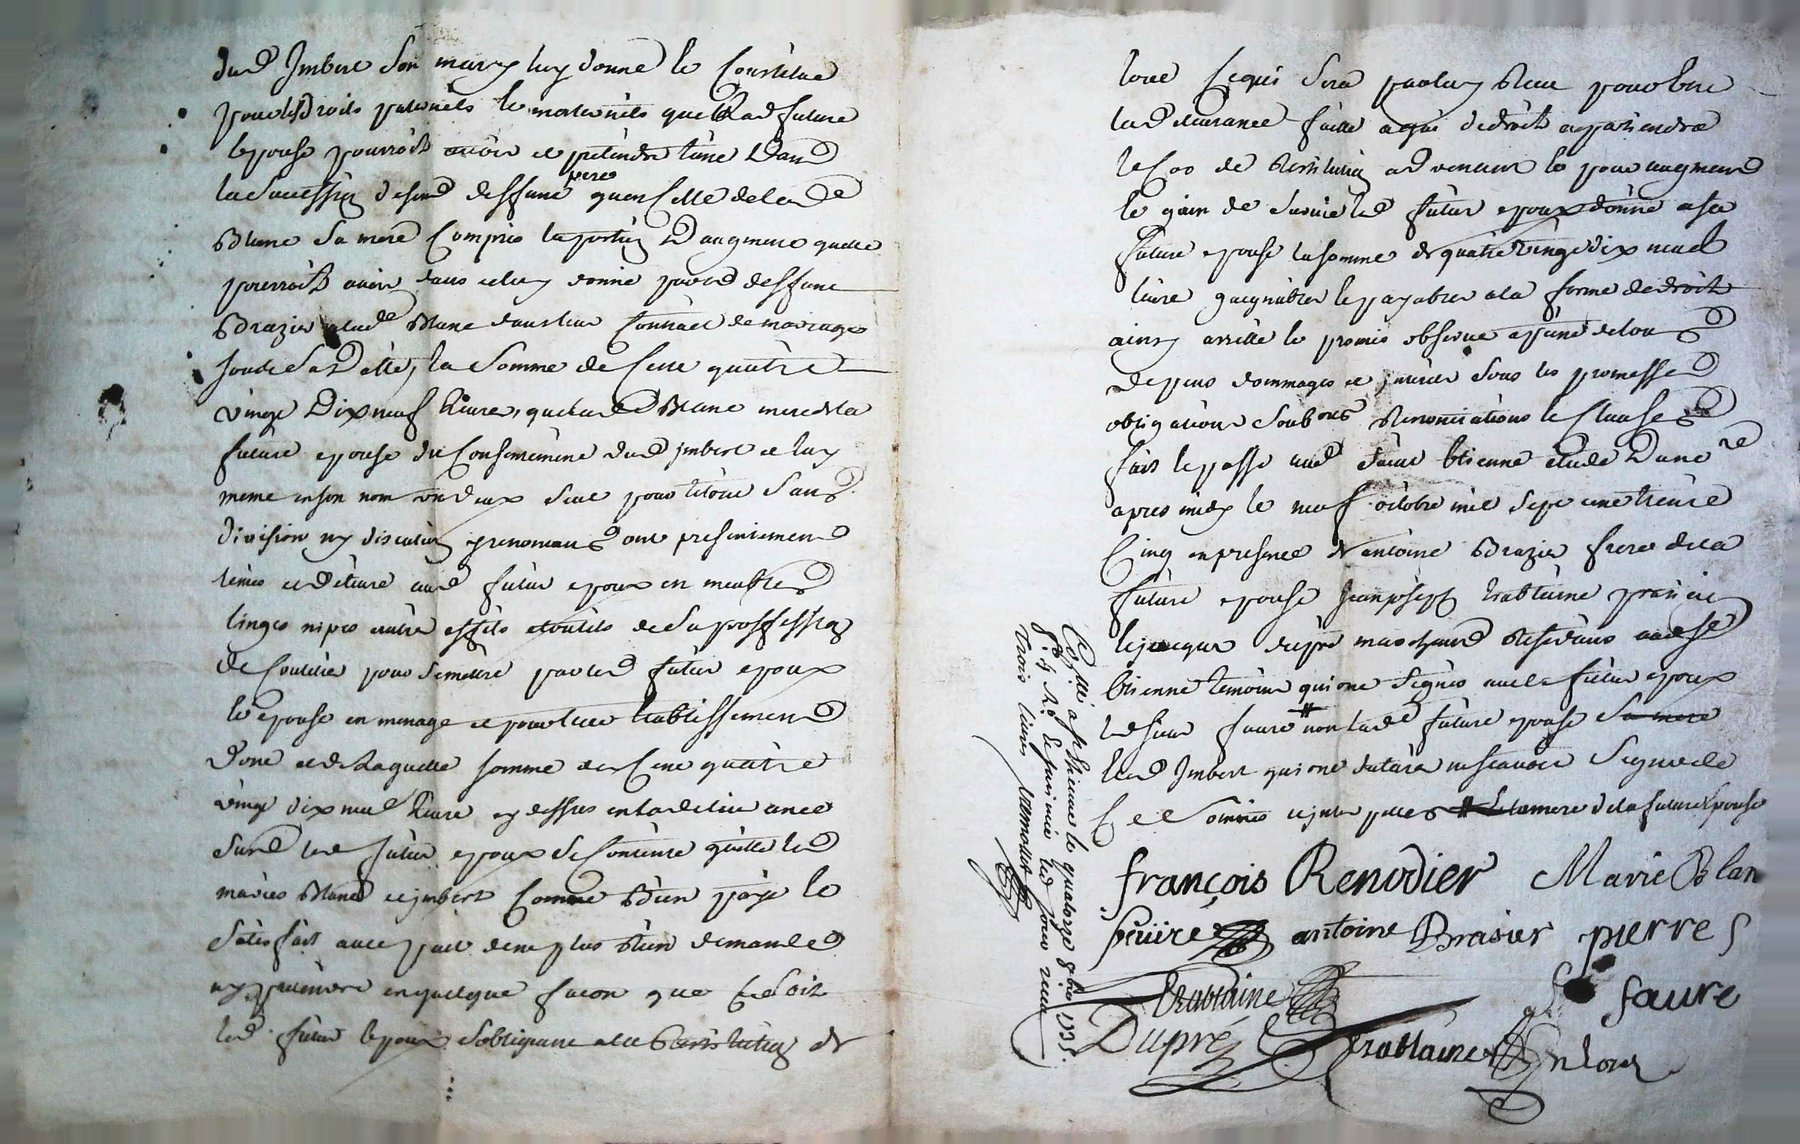 dud Imbert son mary luy donne et Constitue
pour ses droits paternels et maternels que lad future
epouse pourroit avoir et pretendre tant dans
la succession desond deffunt pere qu'en Celle de lade
Blanc sa mere Compris la portion d'augment quelle
pourroit avoir dans celuy donné par led deffunt
Brazier a lade Blanc dans leur Contract de mariage
la somme de Cent quatre
vingt dix neuf livres, que lade Blanc mere de la
future epouse du Consentement dud jmbert et luy
meme en son nom un deux seul pour letout sans
division ny discution y renonceants ont presentement
aud futur epoux en meubles
linges nipes autres effets et outils de sa proffession
pour se mettre par led futur epoux
et epouse en menage et pour leur etablissement
dont et de laquelle somme de Cent quatre
vingt dix neuf livres cy dessus
led futur epoux se Contente quitte led
mariés Blanc et jmbert Comme bien payé et
satisfait avec pact de ne plus rien demander
en quelque facon que Ce soit
led futur epoux s'obligeant a la restitution de
tout Ce qui sera par luy receu pour etre
lad delivrance faitte a qui de droit apartiendra
le Cas de restitution advenant et pour augment
et gain de survie led futur epoux donne a sa
future epouse la somme de quatre vingt dix neuf
livres gaignables et payables a la forme de droit
ainsy arretté et promis observer a peine de tous
depens dommages et jnterets sous les promesses
obligations soubons renonciations et Clauses
fait et passé aud Saint Etienne etude dunore
apres midy le neuf octobre mil sept cent trente
Cinq en presence de antoine Brazier frere de la
future epouse Jean joseph trablaine praticien
et jacques dupré marchand residants aud St
Etienne temoins qui ont signés avec le futur epoux
led sieur faure # non lade future epouse sa mere
et led Imbert qui ont declaré ne scavoir signer de
Ce sommés et jnterpellés # et la mere de la future Epouse
françois Renodier Marie Blan
peüire antoine Brasier pierre S
trablaine St faure
Dupré Trablaine
Con.llé a st Etienne le quatorze 8bre 1735.
trois livres